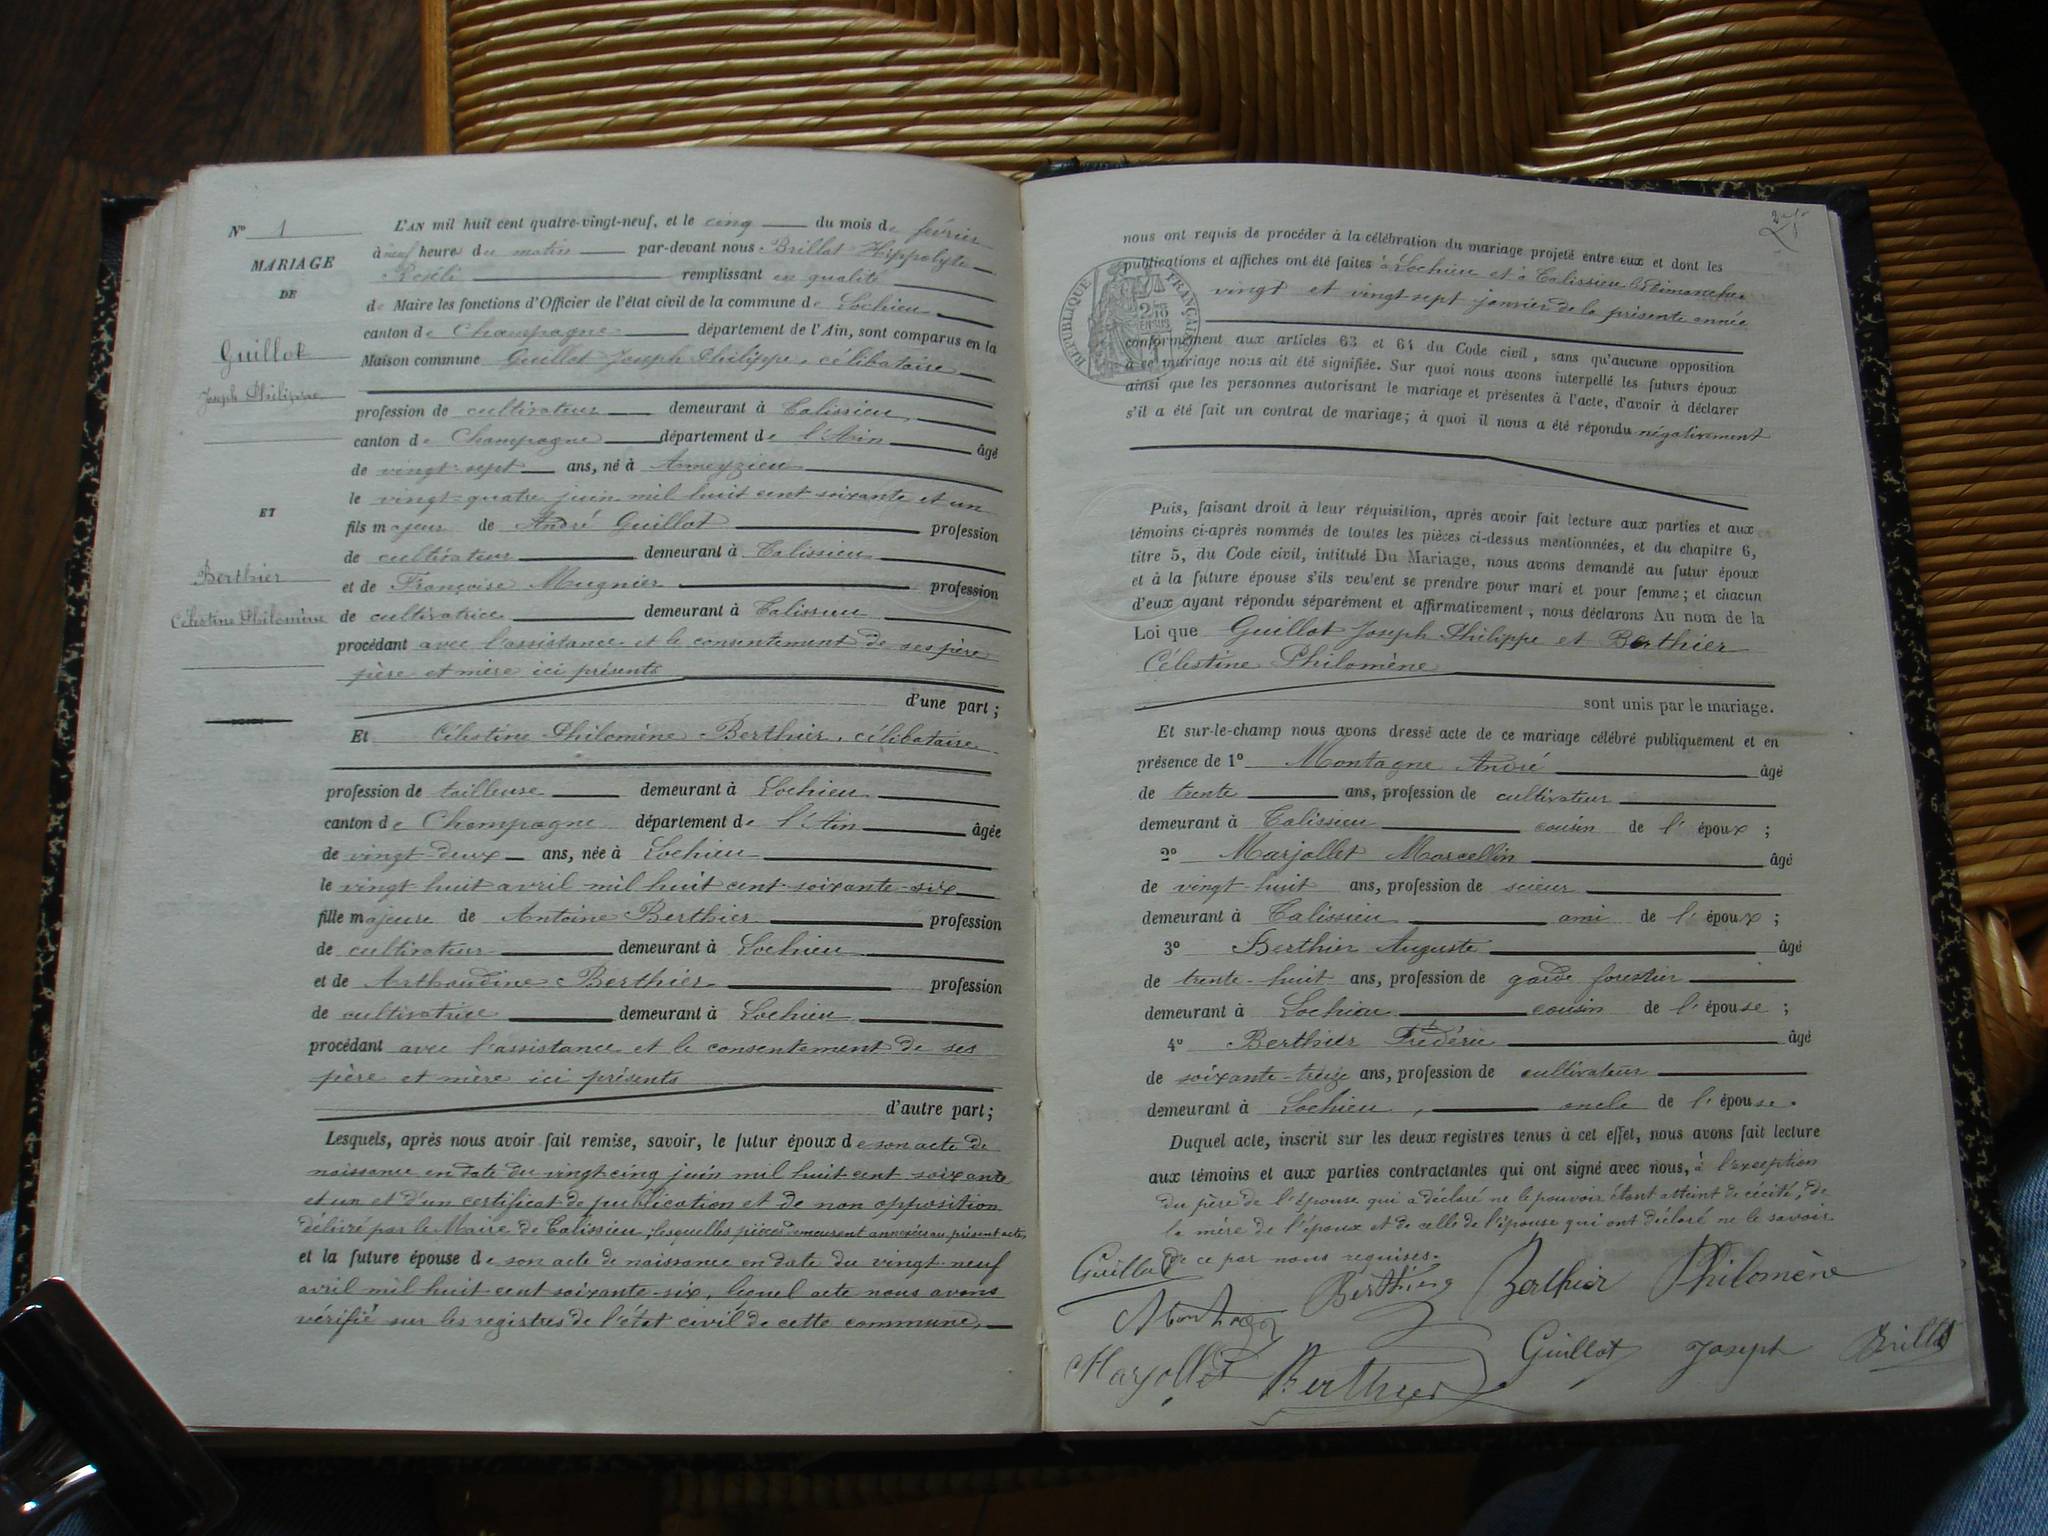 N° 1
MARIAGE
DE
Guillot
Joseph Philippe
ET
Berthier
Célestine Philomène
L'AN mil huit cent quatre-vingt-neuf, et le cinq du mois de février
à neuf heure du matin par-devant nous Brillat Hippolyte
remplissant en qualité
de Maire les fonctions d'Officier de l'état civil de la commune de Lochieu
canton de Champagne département de l'Ain, sont comparus en la
Maison commune Guillot Joseph Philippe, célibataire
profession de cultivateur demeurant à Talissieu
canton de Champagne département de l'Ain âgé
de vingt-sept ans, né à Ameyzieu
le vingt-quatre juin mil huit cent soixante et un
fils majeur de André Guillot profession
de cultivateur demeurant à Talissieu
et de Françoise Mugnier profession
de cultivatrice demeurant à Talissieu
procédant avec l'assistance et le consentement de ses père
père et mère ici présents
d'une part;
Et Célestine Philomène Berthier, célibataire
profession de tailleuse demeurant à Lochieu
canton de Champagne département de l'Ain âgée
de vingt-deux ans, née à Lochieu
le vingt huit avril mil huit cent soixante-six
fille majeure de Antoine Berthier profession
de cultivateur demeurant à Lochieu
et de Arthaudine Berthier profession
de cultivatrice demeurant à Lochieu
procédant avec l'assistance et le consentement de ses
père et mère ici présents
d'autre part;
Lesquels, après nous avoir fait remise, savoir, le futur époux de son acte de
naissance en date du vingt cinq juin mil huit cent soixante
et un et d'un certificat de publication et de non opposition
délivré par le Maire de Talissieu, lesquelles pièces demeurent annexées au présent acte,
et la future épouse de son acte de naissance en date du vingt-neuf
avril mil huit cent soixante-six, lequel acte nous avons
vérifié sur les registres de l'état civil de cette commune,
nous ont requis de procéder à la célébration du mariage projeté entre eux et dont les
publications et affiches ont été faites à Lochieu et à Talissieu les dimanches
vingt et vingt sept janvier de la présente année
RÉPUBLIQUE FRANÇAISE
conformément aux articles 63 et 64 du Code civil, sans qu'aucune opposition
à ce mariage nous ait été signifiée. Sur quoi nous avons interpellé les futurs époux
ainsi que les personnes autorisant le mariage et présentes à l'acte, d'avoir à déclarer
s'il a été fait un contrat de mariage; à quoi il nous a été répondu négativement
Puis, faisant droit à leur réquisition, après avoir fait lecture aux parties et aux
témoins ci-après nommés de toutes les pièces ci-dessus mentionnées, et du chapitre 6,
titre 5, du Code civil, intitulé Du Mariage, nous avons demandé au futur époux
et à la future épouse s'ils veulent se prendre pour mari et pour femme; et chacun
d'eux ayant répondu séparément et affirmativement, nous déclarons Au nom de la
Loi que Guillot Joseph Philippe et Berthier
Célestine Philomène
sont unis par le mariage.
Et sur-le-champ nous avons dressé acte de ce mariage célébré publiquement et en
présence de 1° Montagne André âgé
de trente ans, profession de cultivateur
demeurant à Talissieu cousin de l'époux;
2° Marjollet Marcellin âgé
de vingt-huit ans, profession de scieur
demeurant à Talissieu ami de l'époux;
3° Berthier Auguste âgé
de trente-huit ans, profession de garde forestier
demeurant à Lochieu cousin de l'épouse;
4° Berthier Frédéric âgé
de soixante-treize ans, profession de cultivateur
demeurant à Lochieu, oncle de l'épouse.
Duquel acte, inscrit sur les deux registres tenus à cet effet, nous avons fait lecture
aux témoins et aux parties contractantes qui ont signé avec nous, à l'exception
du père de l'épouse qui a déclaré ne le pouvoir étant atteint de cécité, de
la mère de l'époux et de celle de l'épouse qui ont déclaré ne le savoir
de ce par nous requises.
Guillot Berthier Berthier Philomène
Marjollet Berthier Guillot Joseph Brillat